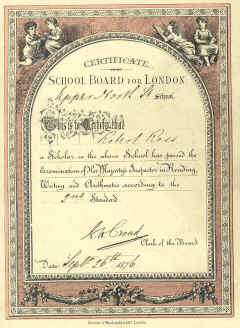 CERTIFICATE
SCHOOL BOARD FOR LONDON
Upper North St School.
This is to Certify that
Robert Ross
a Scholar in the above School has passed the
Examination of Her Majesty's Inspector in Reading,
Writing and Arithmetic according to the
2nd Standard
Clerk of the Board
Date: Sept 26th 1876